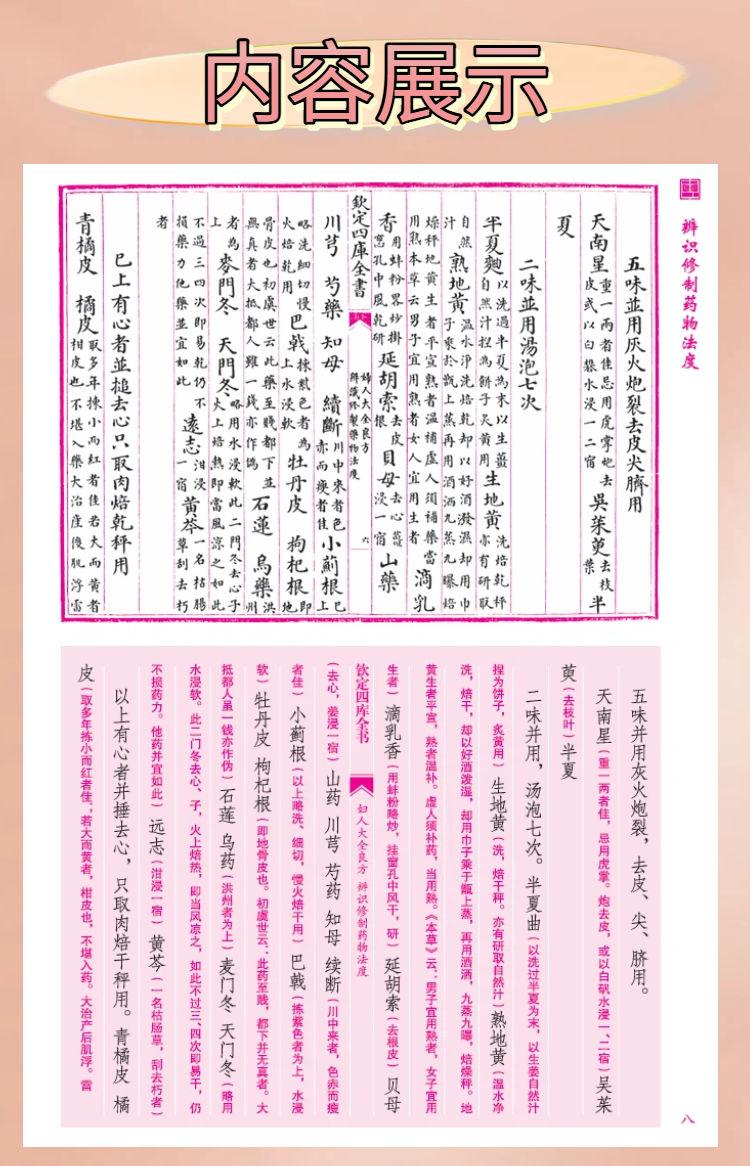 内容展示
辨识修制药物法度
五味並用灰火炮裂去皮尖臍用
天南星 重一兩者佳忌用虎掌炮去皮或以白礬水浸一二宿 吳茱萸 去枝葉 半
夏
二味並用湯泡七次
半夏麴 以洗過半夏為末以生薑自然汁捏為餅子炙黃用 生地黃 洗焙乾秤亦有研取
自然汁 熟地黃 溫水淨洗焙乾却以好酒潑濕却用巾子乘於甑上蒸再用酒洒九蒸九曝焙
燥秤地黃生者平宣熟者溫補虛人須補藥當用熟本草云男子宜用熟者女人宜用生者 滴乳
香 用蚌粉畧炒掛窻孔中風乾研 延胡索 去皮根 貝母 去心薑浸一宿 山藥
欽定四庫全書 卷下 婦人大全良方 辨識修製藥物法度 六
川芎 芍藥 知母 續斷 川中來者色赤而瘦者佳 小薊根 已上
略洗細切慢火焙乾用 巴戟 揀紫色者為上水浸軟 牡丹皮 枸杞根 即地
骨皮也初虞世云此藥至賤都下並無真者大抵都人雖一錢亦作偽 石蓮 烏藥 洪州
者為上 麥門冬 天門冬 略用水浸軟此二門冬去心子火上焙熱即當風涼之如此
不過三四次即易乾仍不損藥力他藥並宜如此 遠志 泔浸一宿 黃芩 一名枯腸草刮去朽
者
已上有心者並搥去心只取肉焙乾秤用
青橘皮 橘皮 取多年揀小而紅者佳若大而黃者柑皮也不堪入藥大治産後肌浮雷
五味并用灰火炮裂,去皮、尖、脐用。
天南星(重一两者佳,忌用虎掌。炮去皮,或以白矾水浸一、二宿)吴茱
萸(去枝叶)半夏
二味并用,汤泡七次。半夏曲(以洗过半夏为末,以生姜自然汁
捏为饼子,炙黄用)生地黄(洗,焙干秤。亦有研取自然汁)熟地黄(温水净
洗,焙干,却以好酒泼湿,却用巾子乘于甑上蒸,再用酒洒,九蒸九曝,焙燥秤。地
黄生者平宣,熟者温补。虚人须补药,当用熟。《本草》云:男子宜用熟者,女子宜用
生者)滴乳香(用蚌粉略炒,挂窗孔中风干,研)延胡索(去根皮)贝母
钦定四库全书 妇人大全良方 辨识修制药物法度
(去心,姜浸一宿)山药 川芎 芍药 知母 续断(川中来者,色赤而瘦
者佳)小蓟根(以上略洗、细切,慢火焙干用)巴戟(拣紫色者为上,水浸
软)牡丹皮 枸杞根(即地骨皮也。初虞世云:此药至贱,都下并无真者。大
抵都人虽一钱亦作伪)石莲 乌药(洪州者为上)麦门冬 天门冬(略用
水浸软。此二门冬去心、子,火上焙热,即当风凉之,如此不过三、四次即易干,仍
不损药力。他药并宜如此)远志(泔浸一宿)黄芩(一名枯肠草,刮去朽者)
以上有心者并捶去心,只取肉焙干秤用。青橘皮 橘
皮(取多年拣小而红者佳;若大而黄者,柑皮也,不堪入药。大治产后肌浮。雷
八